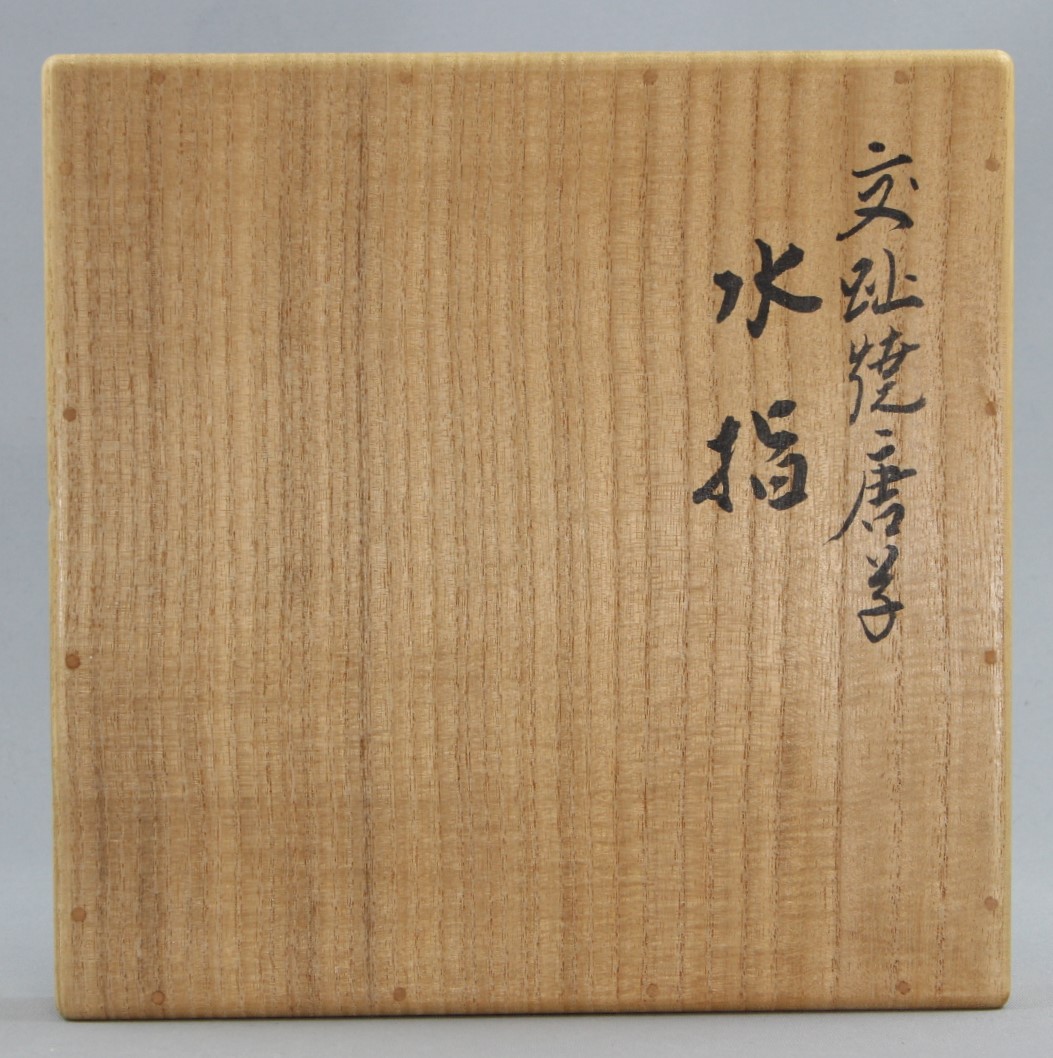 交趾焼唐草
水指